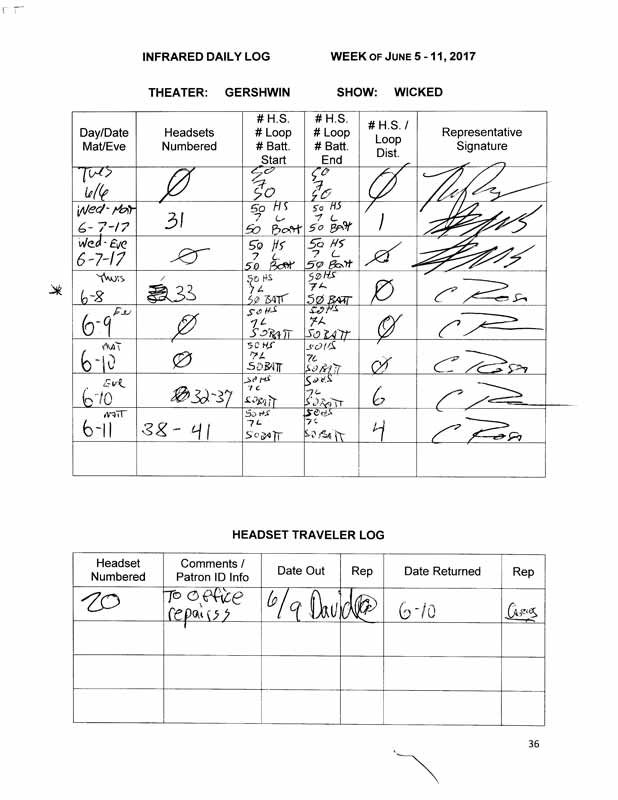 INFRARED DAILY LOG WEEK OF JUNE 5 - 11, 2017
THEATER: GERSHWIN SHOW: WICKED
Day/Date Mat/Eve Headsets Numbered # H.S. # Loop # Batt. Start # H.S. # Loop # Batt. End # H.S. / Loop Dist. Representative Signature
Tues 6/6 Ø 50 7 50 50 7 50 Ø
Wed-Mat 6-7-17 31 50 HS 7 L 50 Batt 50 HS 7 L 50 Batt 1
Wed-Eve 6-7-17 Ø 50 HS 7 L 50 Batt 50 HS 7 L 50 Batt Ø
* Thurs 6-8 33 50 HS 7L 50 BATT 50 HS 7L 50 BATT Ø C Rosa
6-9 Ø 50 HS 7L 50 BATT 50 HS 7L 50 BATT Ø
MAT 6-10 Ø 50 HS 7L 50 BATT 50 HS 7L 50 BATT Ø C. Rosa
EVE 6-10 32-37 50 HS 7L 50 BATT 50 HS 7L 50 BATT 6
MATT 6-11 38 - 41 50 HS 7L 50 BATT 50 HS 7L 50 BATT 4 C Rosa
HEADSET TRAVELER LOG
Headset Numbered Comments / Patron ID Info Date Out Rep Date Returned Rep
20 To office repairss 6/9 David 6-10
36